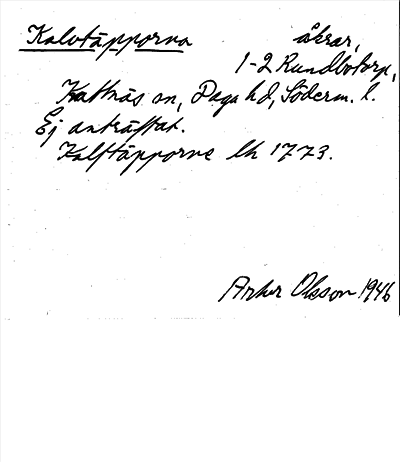 Kalvtäpporna åkrar,
1-2 Rundbotorp,
Kattnäs sn, Daga hd, Söderm. l.
Ej anträffat.
Kalftäpporne lh 1773.
Artur Olsson 1946